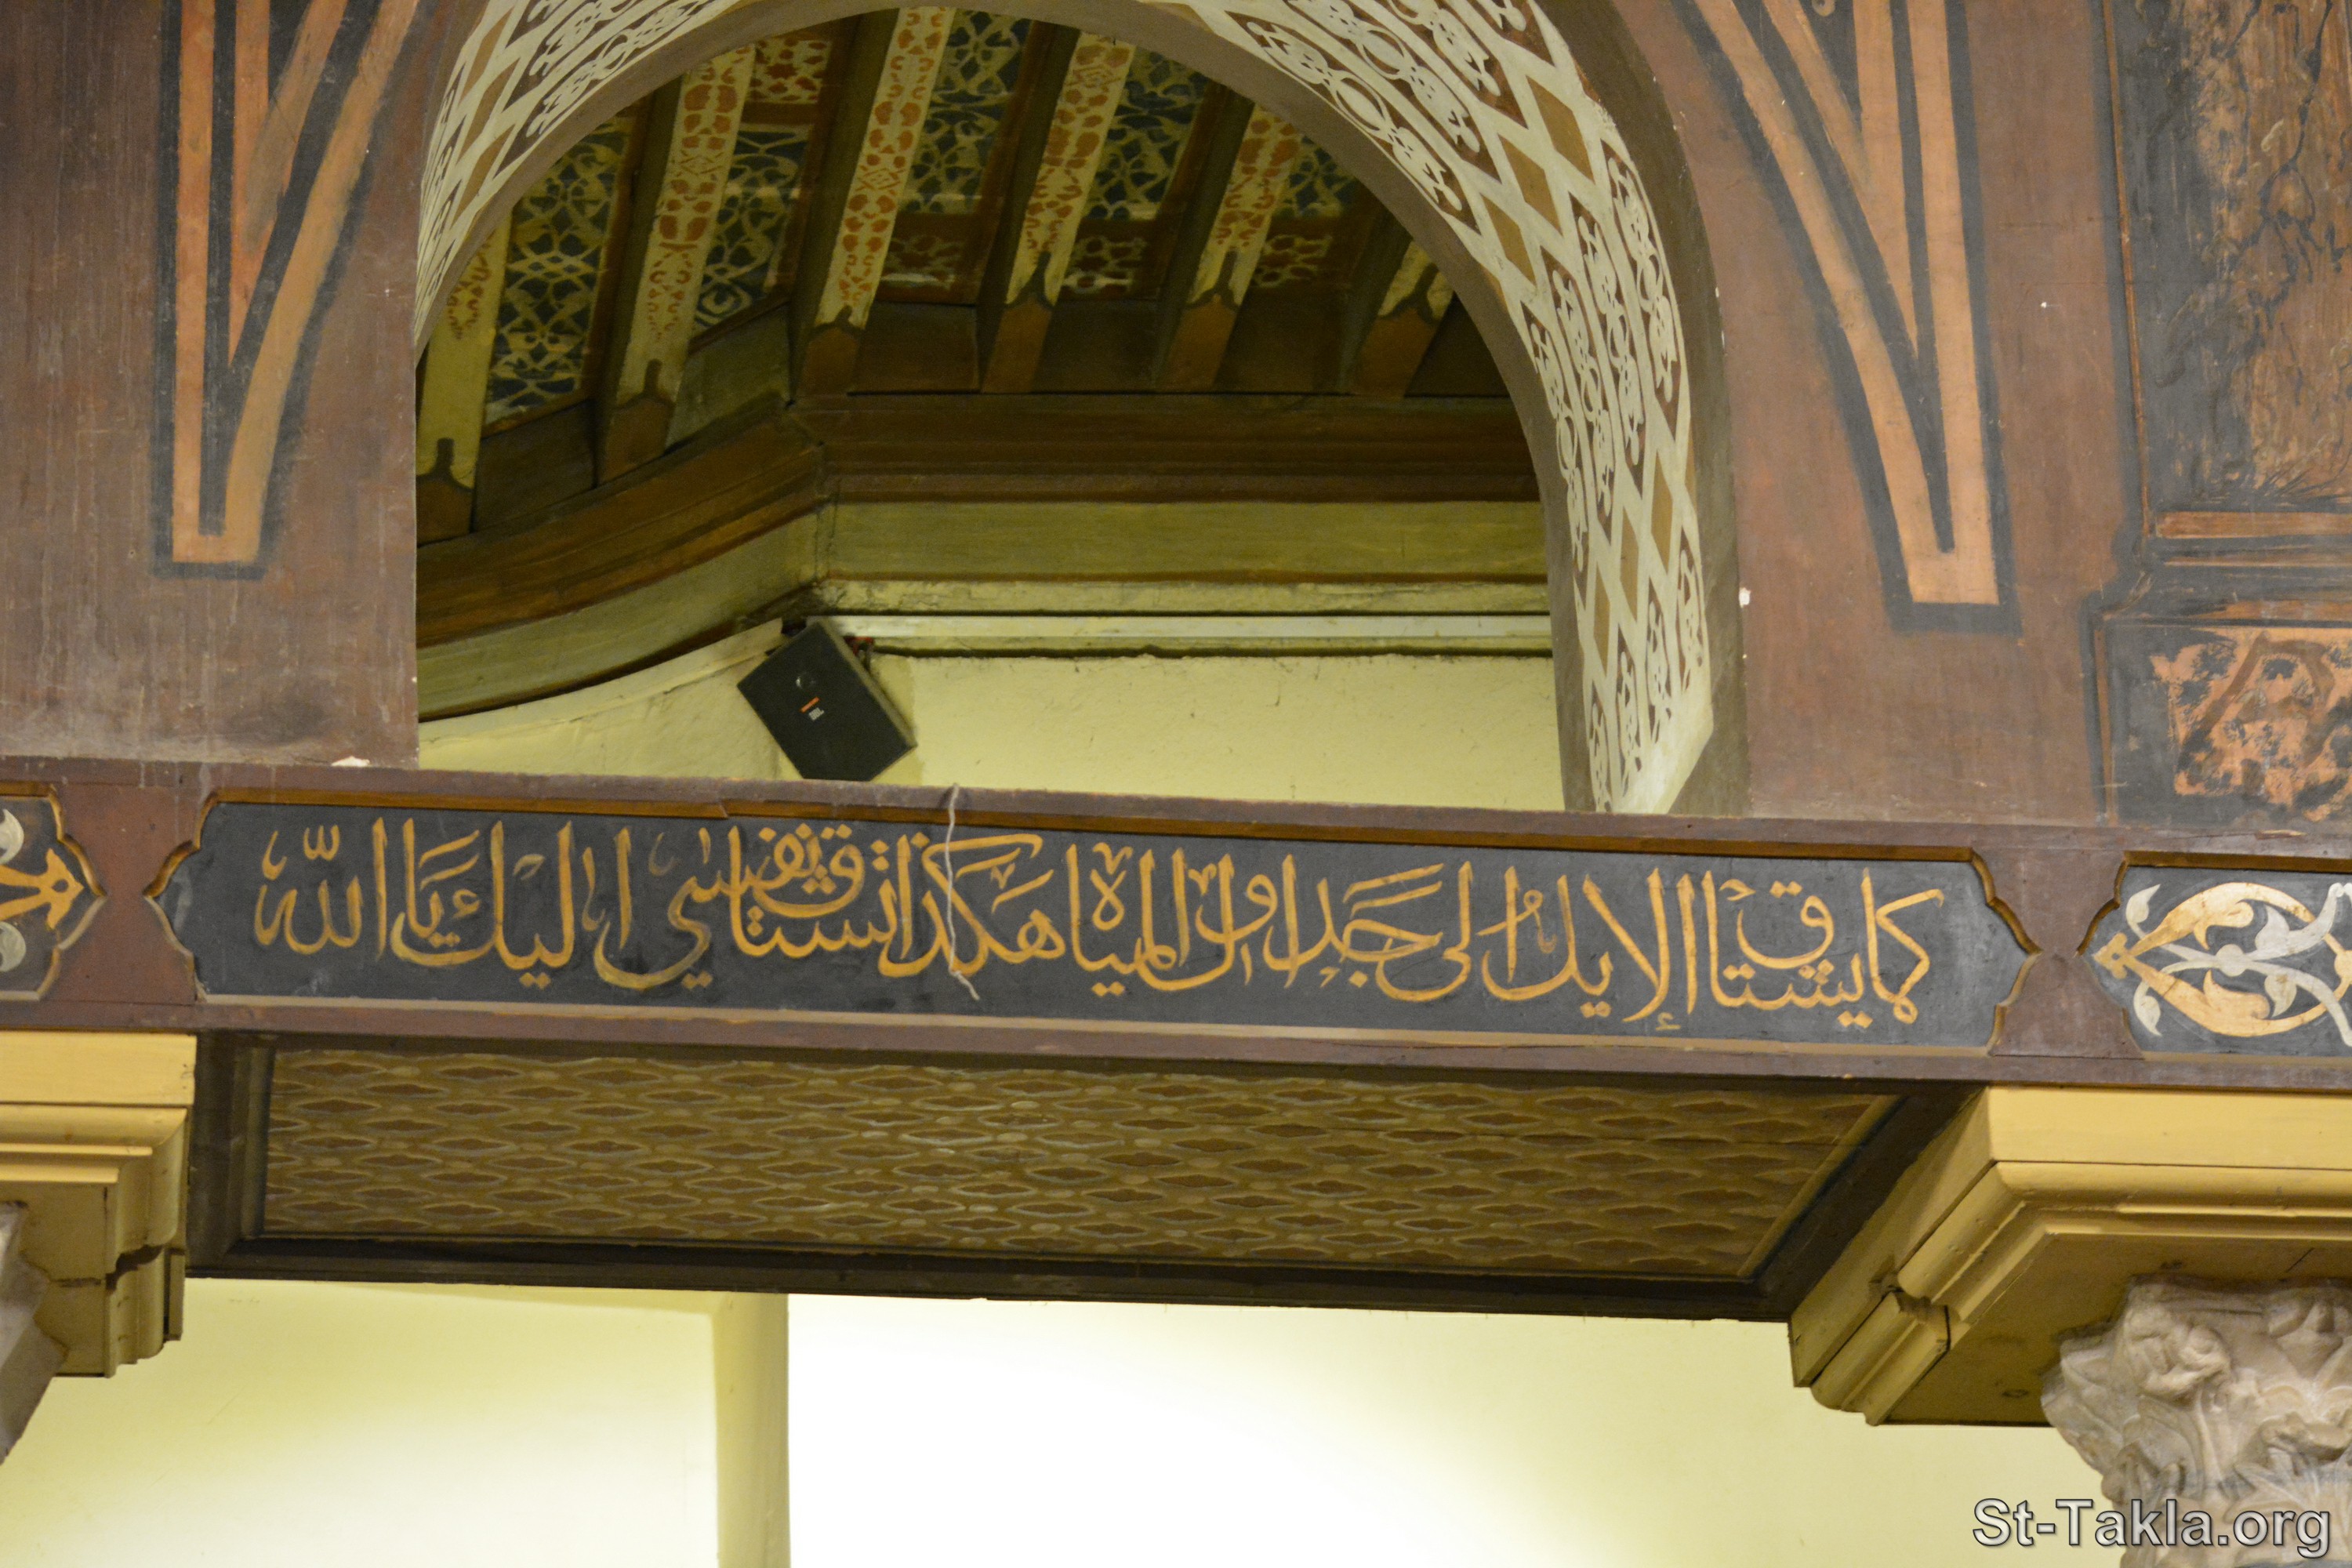 كما يشتاق الإيل إلى جداول المياه هكذا تشتاق نفسي اليك يا الله
St-Takla.org